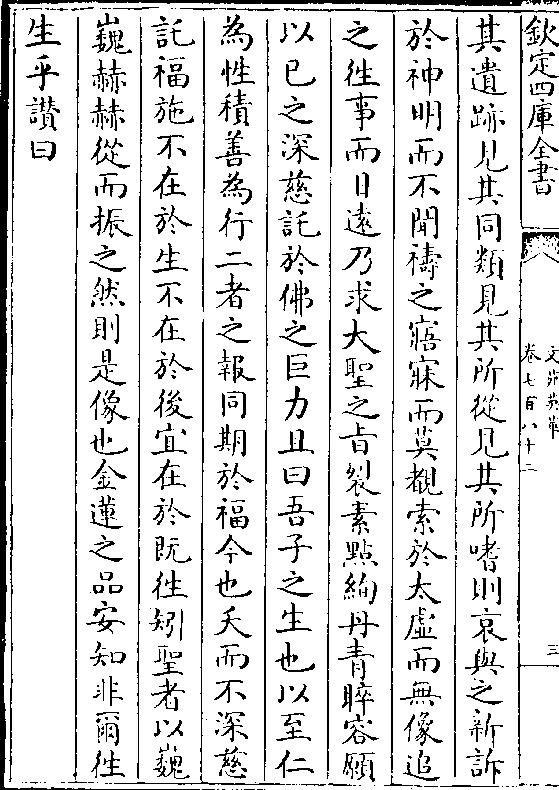 欽定四庫全書
文苑英華
卷七百八十二
三
其遺跡見其同類見其所從見其所嗜則哀與之新訴
於神明而不聞禱之寤寐而莫覩索於太虛而無像追
之徃事而日遠乃求大聖之旨裂素點絢丹青睟容願
以已之深慈託於佛之巨力且曰吾子之生也以至仁
為性積善為行二者之報同期於福今也夭而不深慈
託福施不在於生不在於後宜在於既徃矧聖者以巍
巍赫赫從而振之然則是像也金蓮之品安知非爾徃
生乎讃曰